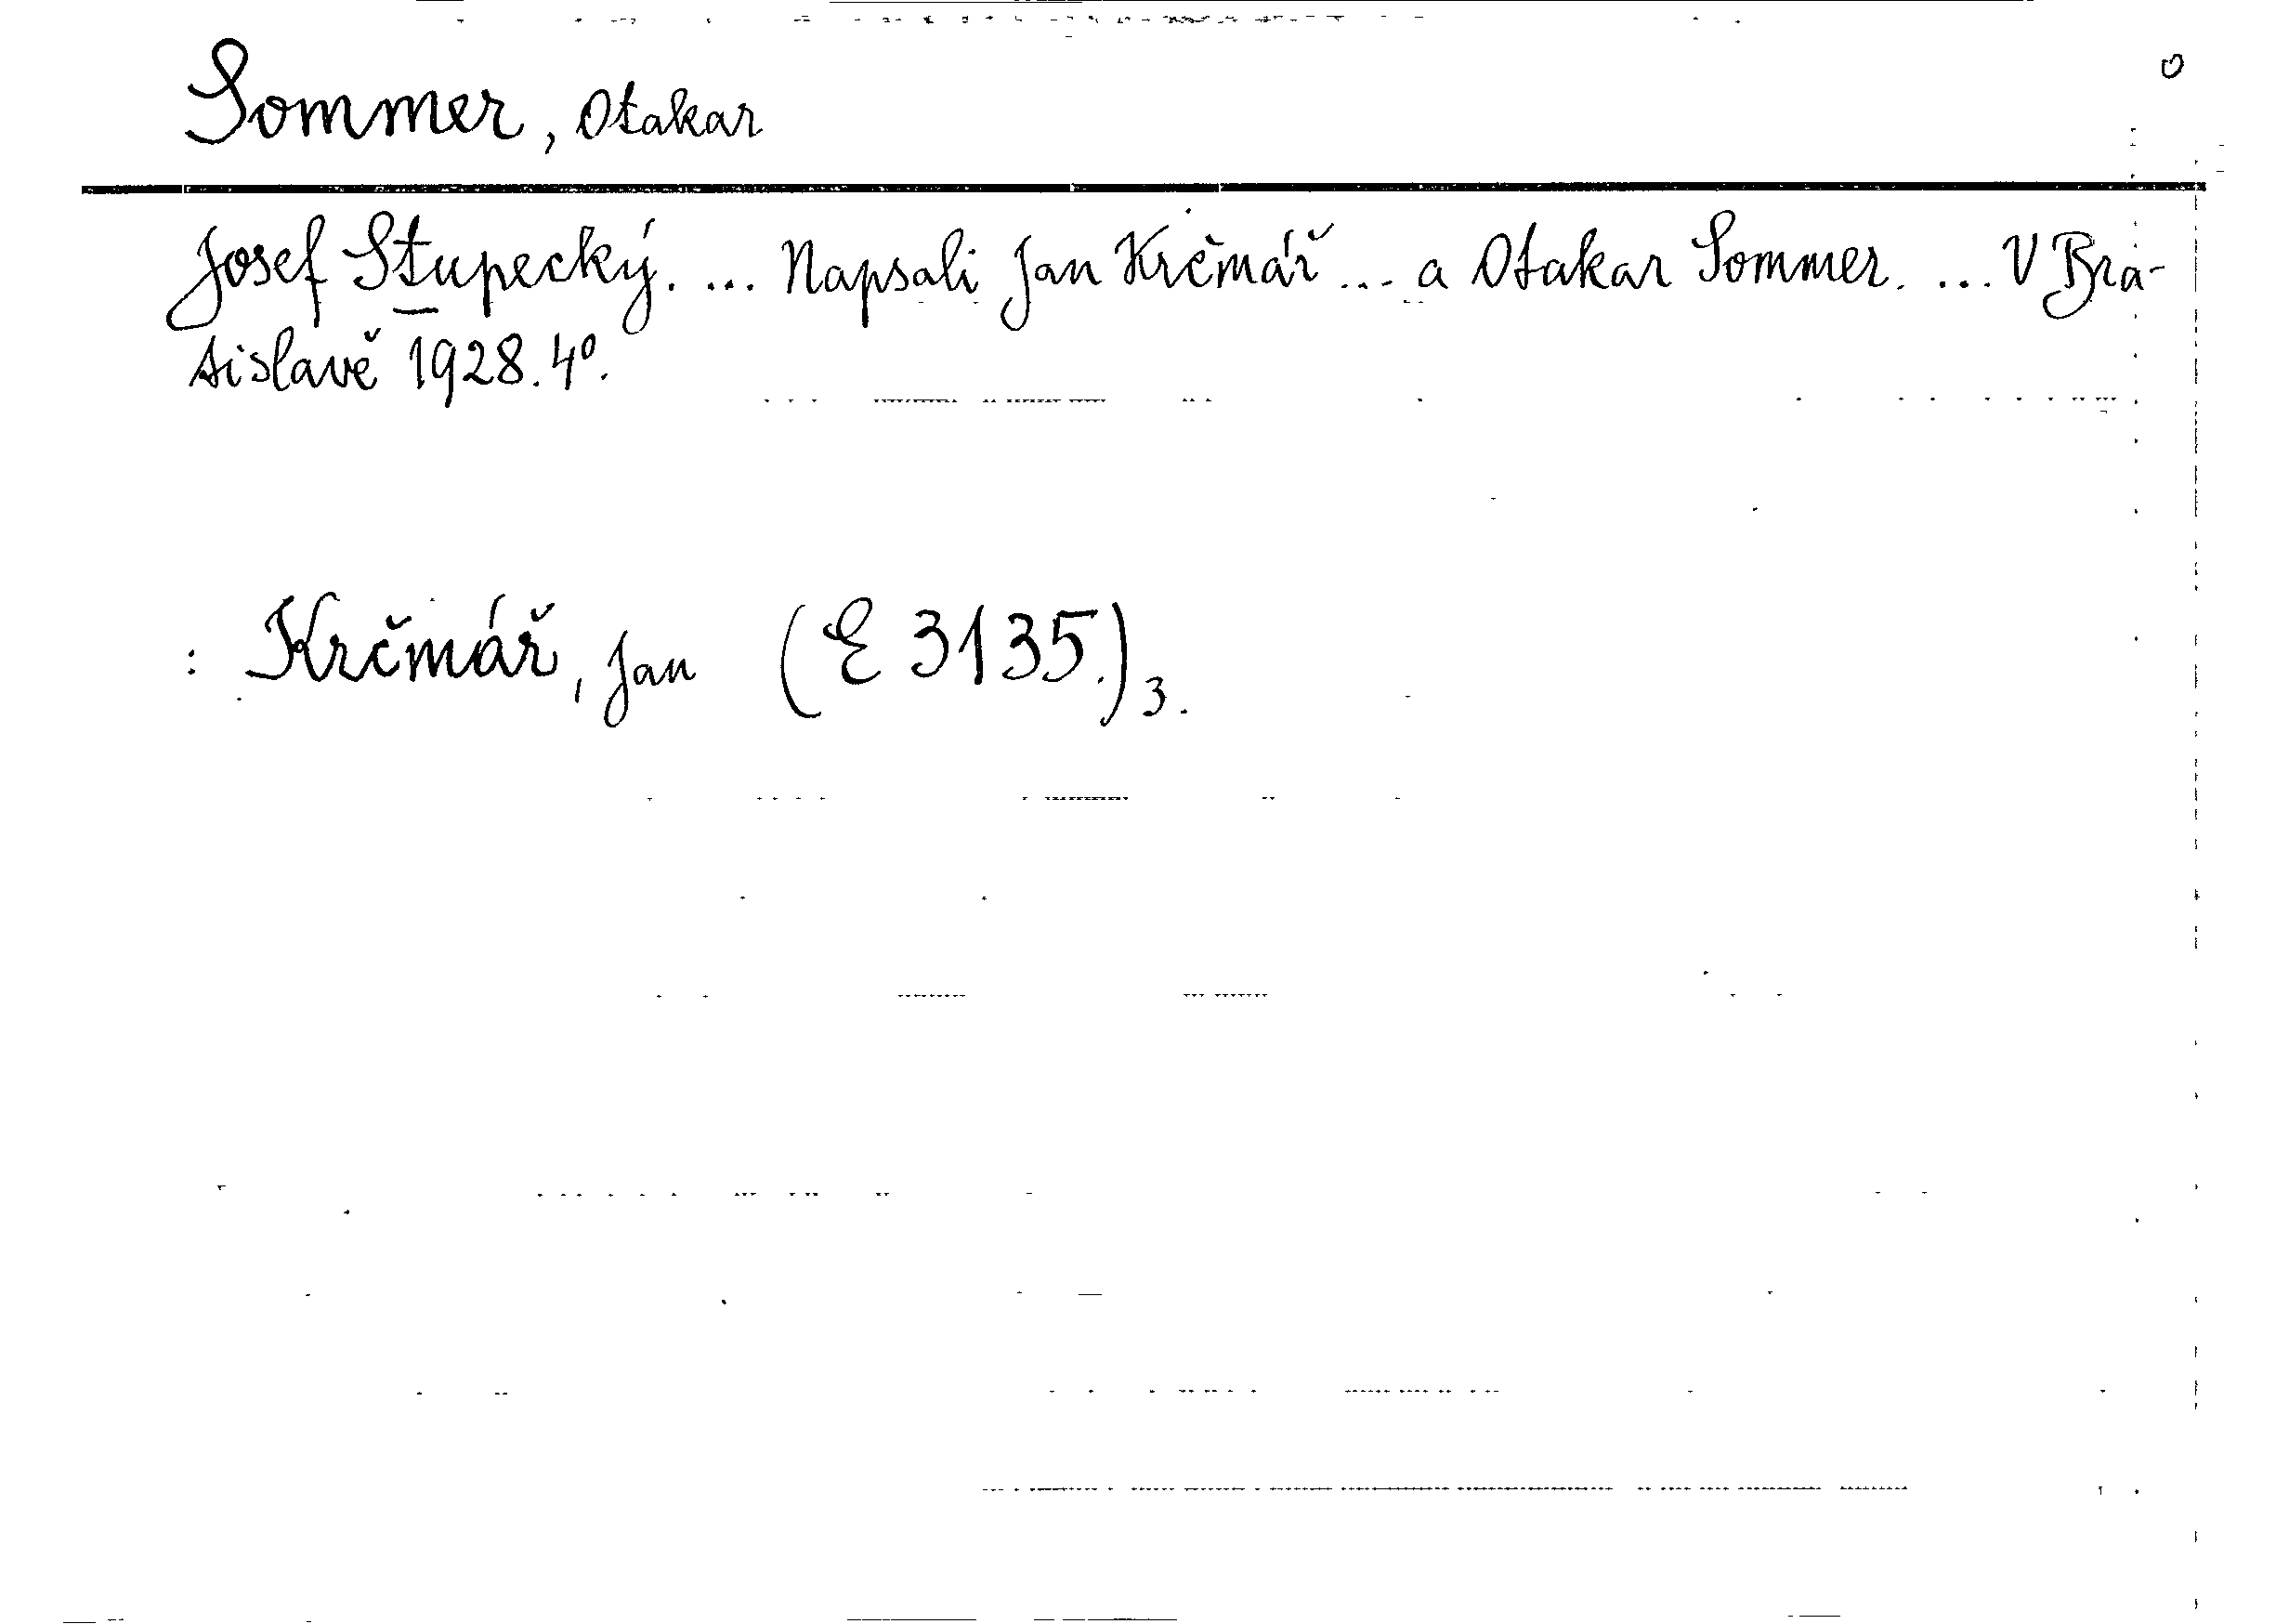 Sommer, Otakar
Josef Stupecký. ... Napsali Jan Krčmář ... a Otakar Sommer. ... V Bra-
tislavě 1928. 4º.
: Krčmář, Jan (E 3135.) 3.